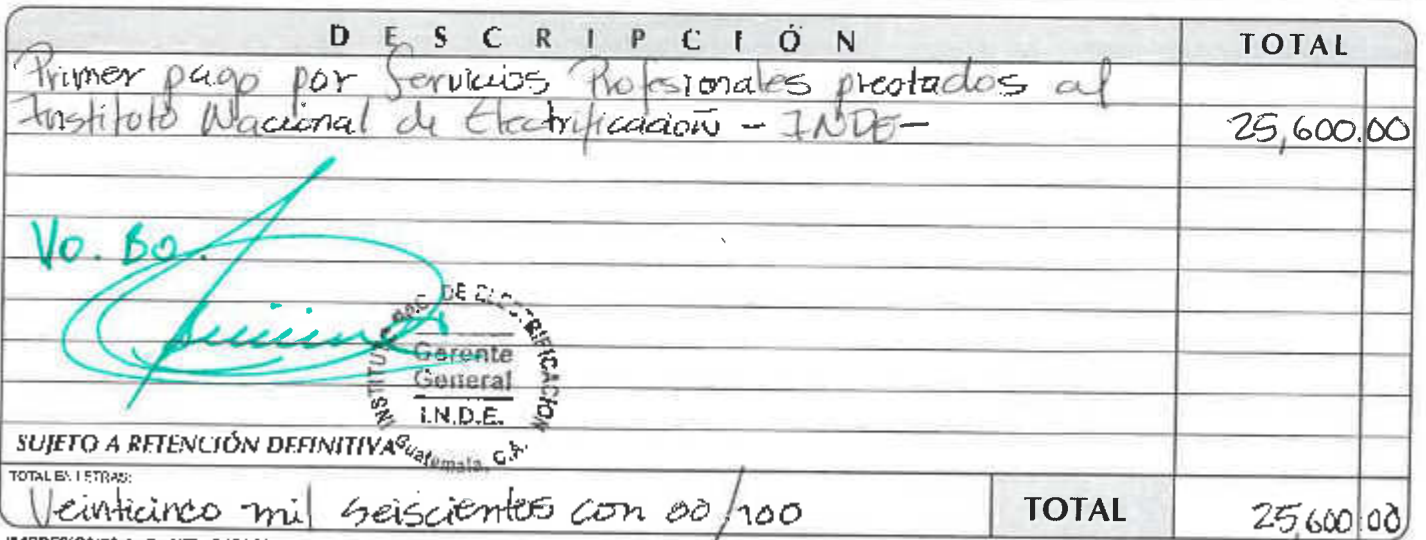 DESCRIPCIÓN TOTAL
Primer pago por Servicios Profesionales prestados al
Instituto Nacional de Electrificación - INDE- 25,600.00
Vo. Bo.
Gerente
General
I.N.D.E.
Guatemala, C.A.
SUJETO A RETENCIÓN DEFINITIVA
TOTAL EN LETRAS:
Veinticinco mil seiscientos con 00/100 TOTAL 25,600.00